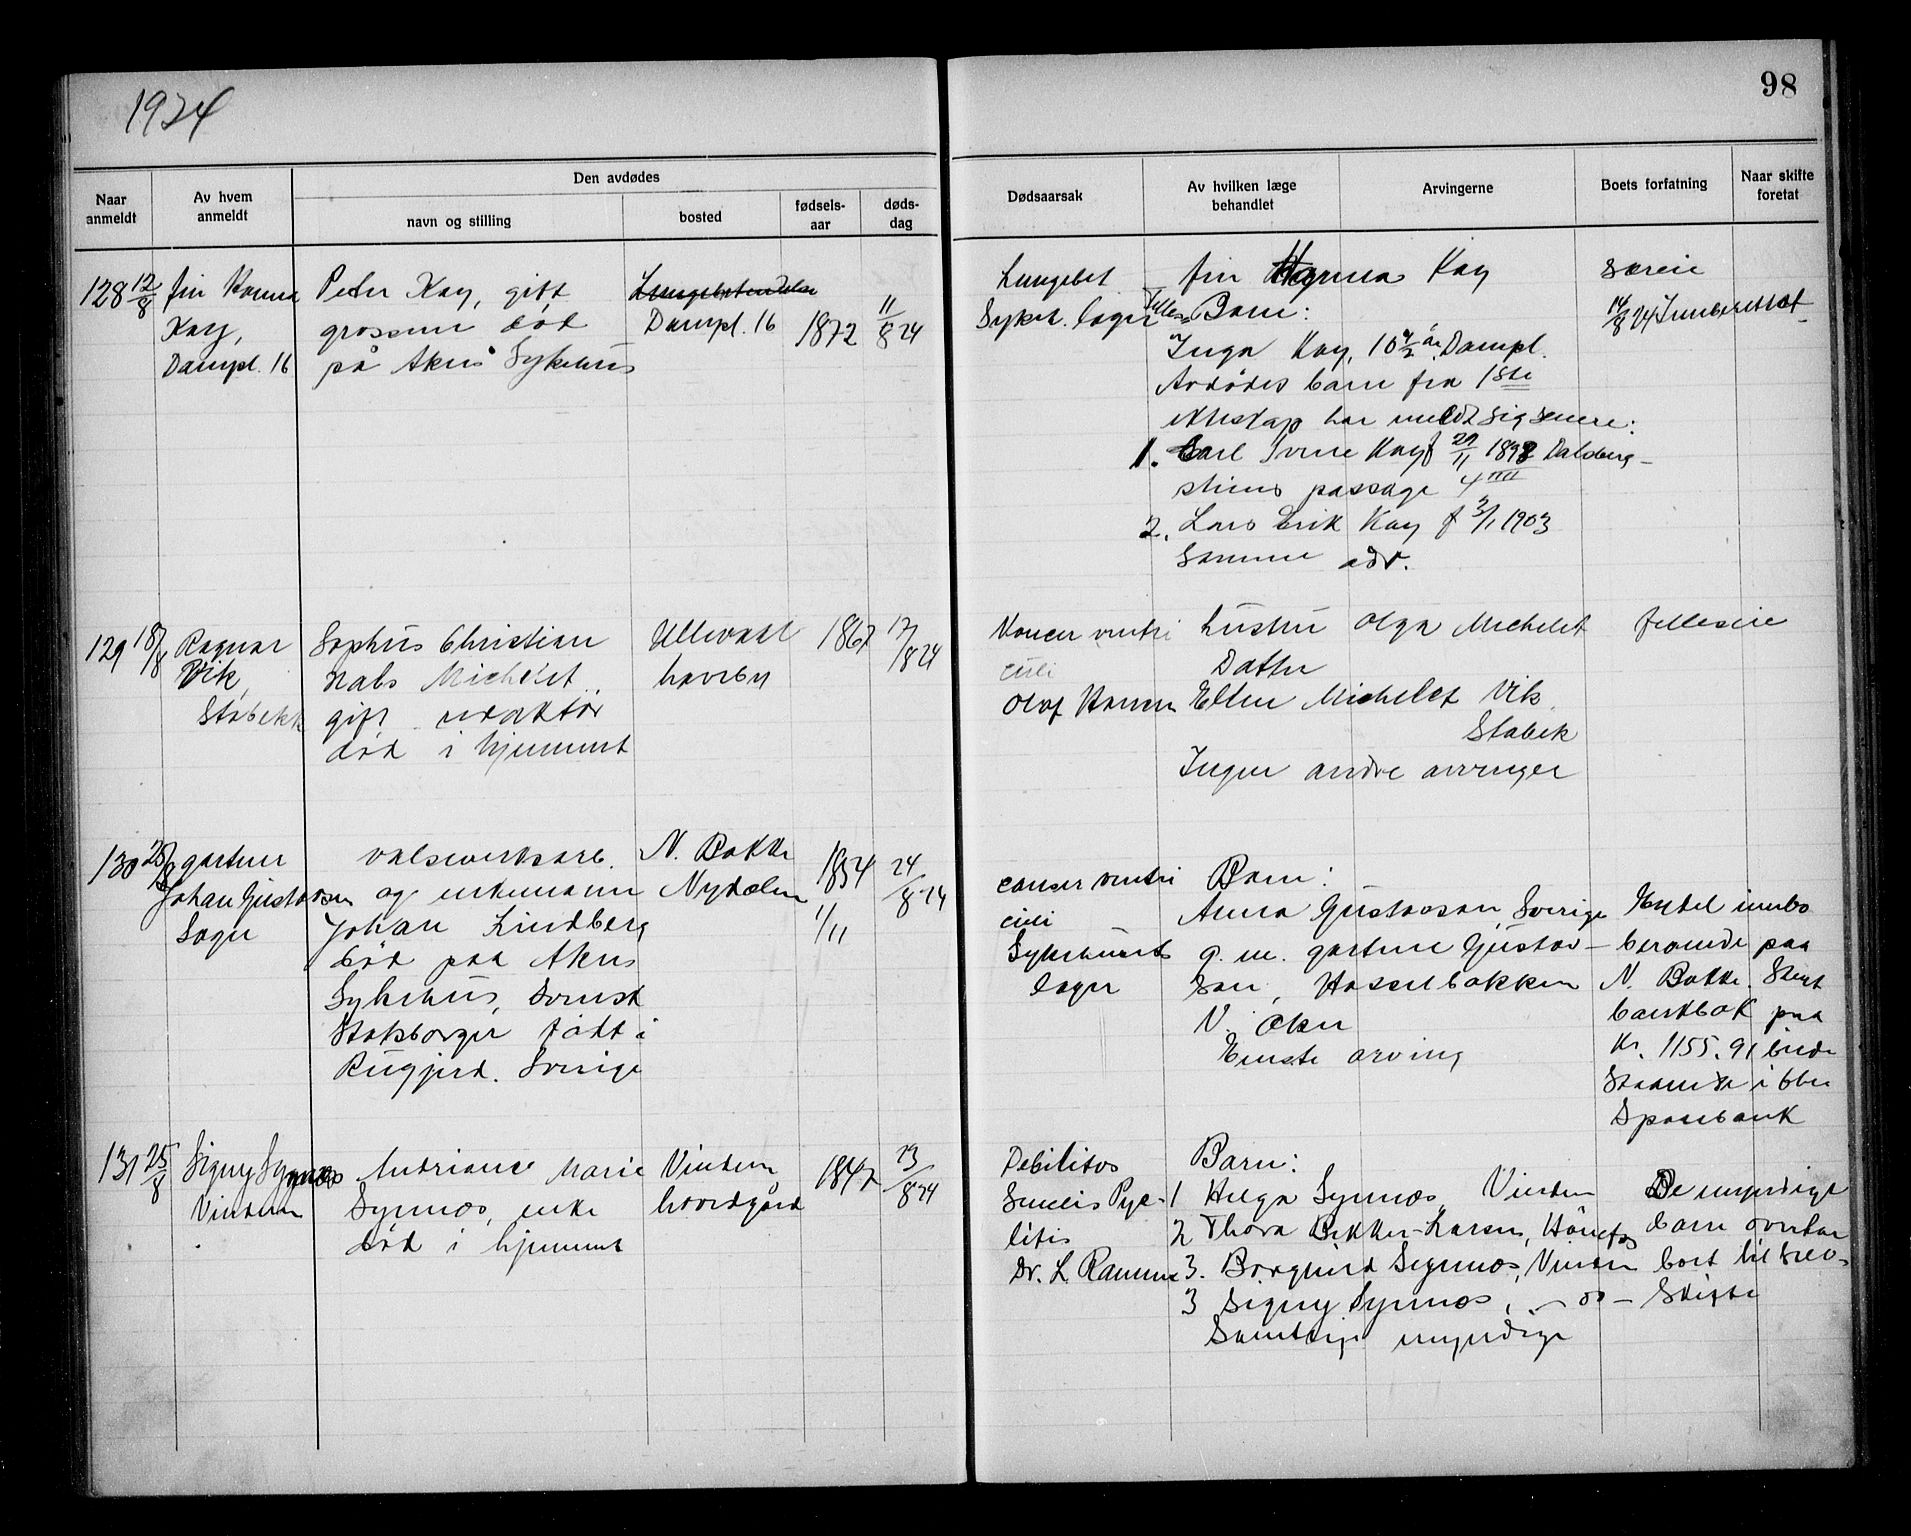 1924
98
Naar anmeldt
Av hvem anmeldt
Den avdødes
navn og stilling
bosted
fødsels-aar
døds-dag
Dødsaarsak
Av hvilken læge behandlet
Arvingerne
Boets forfatning
Naar skifte foretat
128 12/8
fru Hanna
Kay,
Dampl. 16
Peter Kay, gift
grosserer død
på Akers Sykehus
Dampl. 16
1872
11/8 24
Lungebet.
Sykeh. læger
fru Hanna Kay
Barn:
Inga Kay, 10 1/2 år, Dampl.
Avdødes barn fra 1ste
ekteskap har meldt sig senere:
1. Carl Sverre Kay f 29/11 1898 Dalsberg-
stiens passage 4 III
2. Lars Erik Kay f 3/1 1903
samme adr.
særeie
14/8 24 Innberettet
129 18/8
Ragnar
Vik,
Stabekk
Sophus Christian
Michelet
gift redaktör
död i hjemmet
Ullevaal
haveby
1867
17/8 24
Kancer ventri
culi
Olaf Hansen
hustru Olga Michelet
Datter
Ellen Michelet Vik
Stabek
Ingen andre arvinger
felleseie
130 25/8
gartner
Johan Gustavsen
Sogn
valseverksarb.
og enkemann
Johan Lindberg
död paa Akers
Sykehus, Svensk
Statsborger födt i
Sverige
N. Bakke
Nydalen
1854
1/11
24/8 24
cancer ventri
culi
Sykehusets
læger
Barn:
Anna Gustavson, Sverige
g. m. gartner Gustav-
son, Hasselbakken
V. Aker
Eneste arving
Endel innbo
beroende paa
N. Bakke. Samt
bankbok paa
Kr. 1155.91
i
Sparebank
131 25/8
Signy Synnæs
Vinderen
Andriane Marie
Synnæs, enke
död i hjemmet
Vinderen
hovedgård
1847
23/8 24
Debilitas
Senilis Pye-
litis
Dr. L. Ramm
Barn:
1 Helga Synnæs, Vinderen
2 Thora Bekker-Larsen, Hönefos
3. Borghild Synnæs, Vinderen
3 Signy Synnæs, — " —
Samtlige myndige
De myndige
barn overtar
boet til privat
Skifte